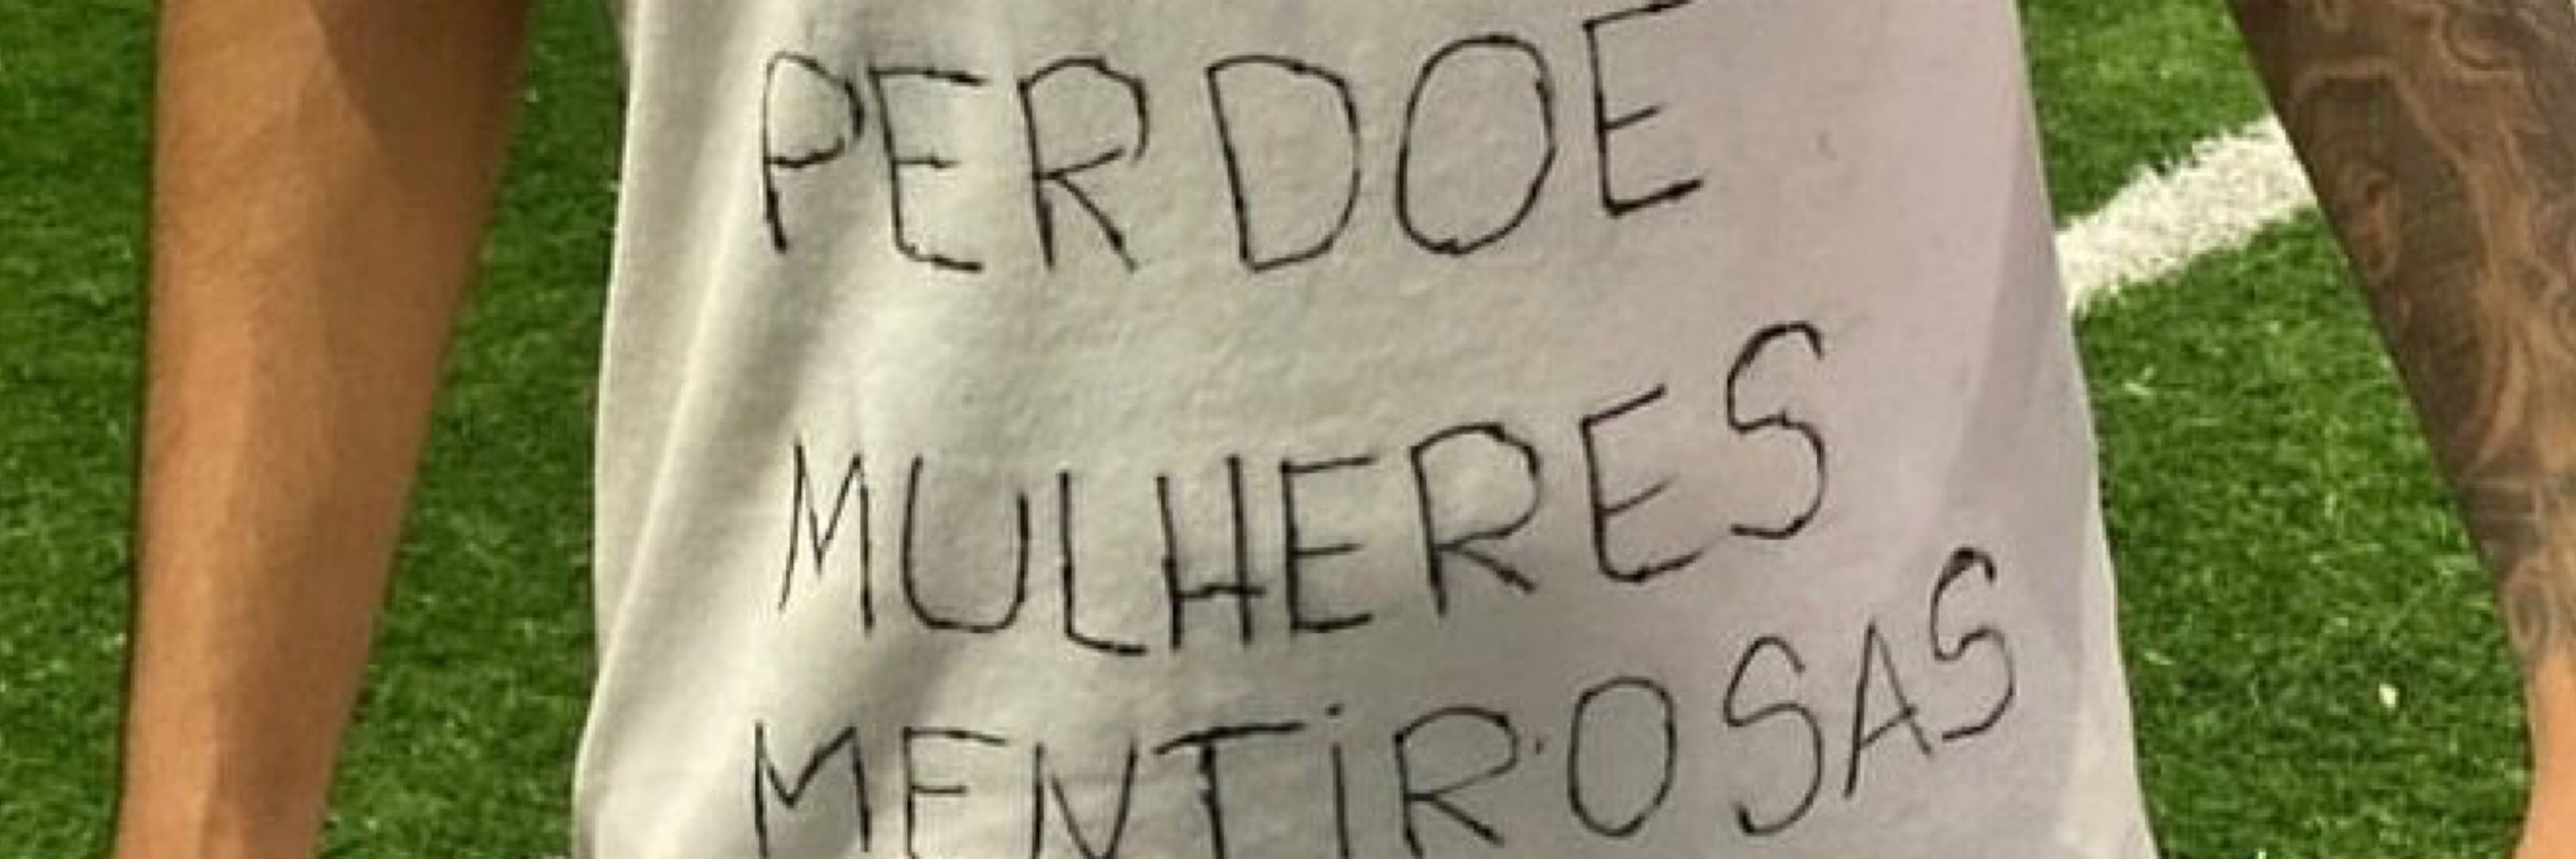 PERDOE
MULHERES
MENTIROSAS